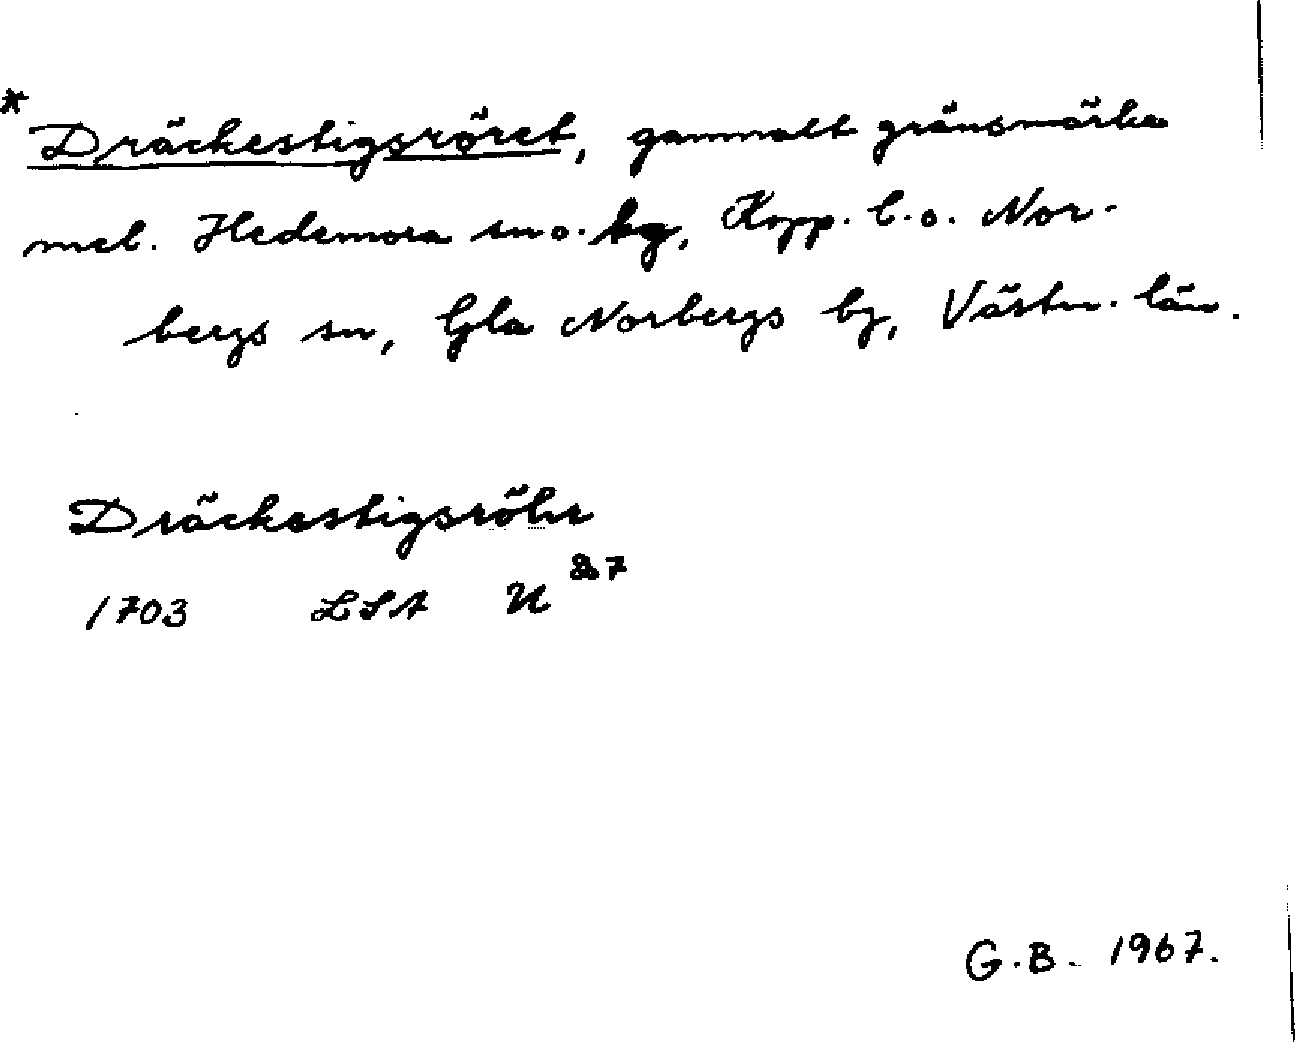 *Dräckestigsröret, gammalt gränsmärke
mel. Hedemora sn o. hg, Kopp. l. o. Nor-
bergs sn, Gla Norbergs bg, Västm. län.
Dräckestigsröhr
1703 LSA U 27
G.B. 1967.